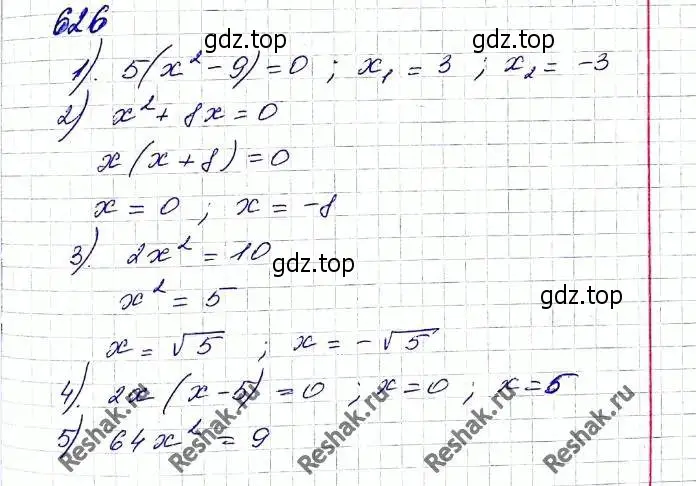 626
gdz.top
1). 5(x² - 9) = 0 ; x₁ = 3 ; x₂ = -3
2) x² + 8x = 0
x(x + 8) = 0
gdz.top
x = 0 ; x = -8
3). 2x² = 10
gdz.top
x² = 5
gdz.top
x = √5 ; x = -√5
4). 2x(x - 5) = 0 ; x = 0 ; x = 5
5) 64x² = 9
Reshak.ru
Reshak.ru
Reshak.ru
Reshak.ru
Reshak.ru